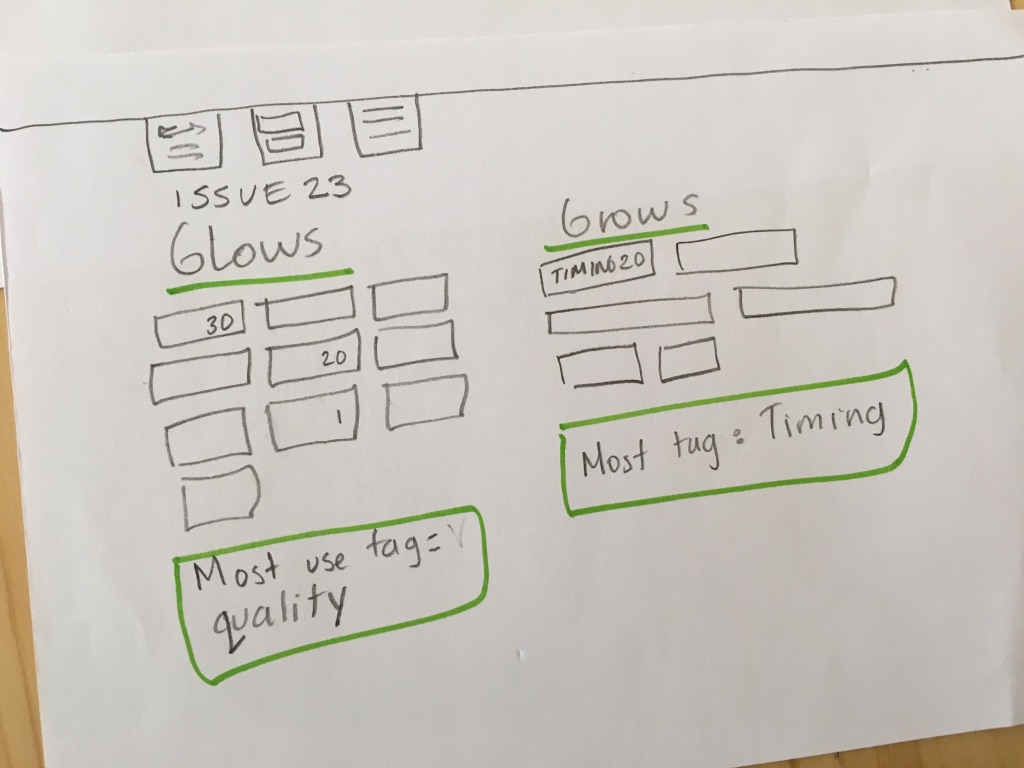 ISSUE 23
Glows
30
20
1
Most use tag =
quality
Grows
TIMING 20
Most tag : Timing